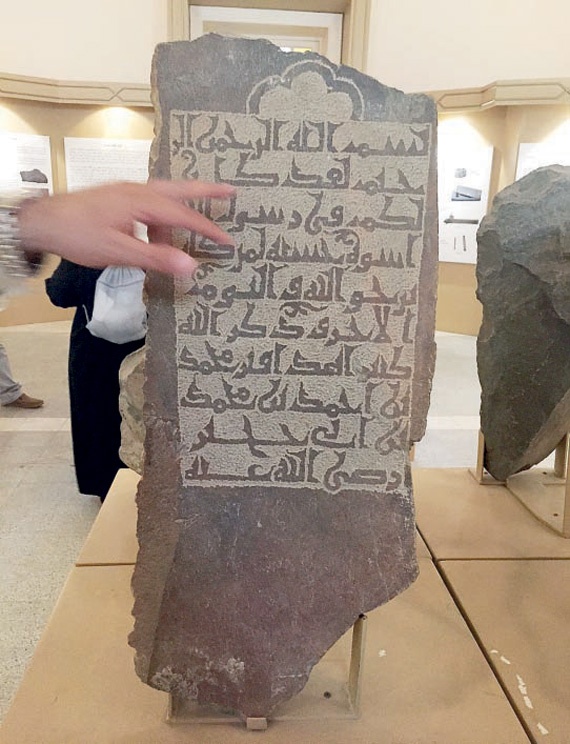 بسم الله الرحمن الر
حيم لقد كان
لكم في رسول
اسوة حسنة لمن كان
يرجو الله و اليوم
ا لاخر و ذكر الله
كثيرا هذا قبر محمد
بن احمد بن محمد
بن ابي
رضي الله عنه